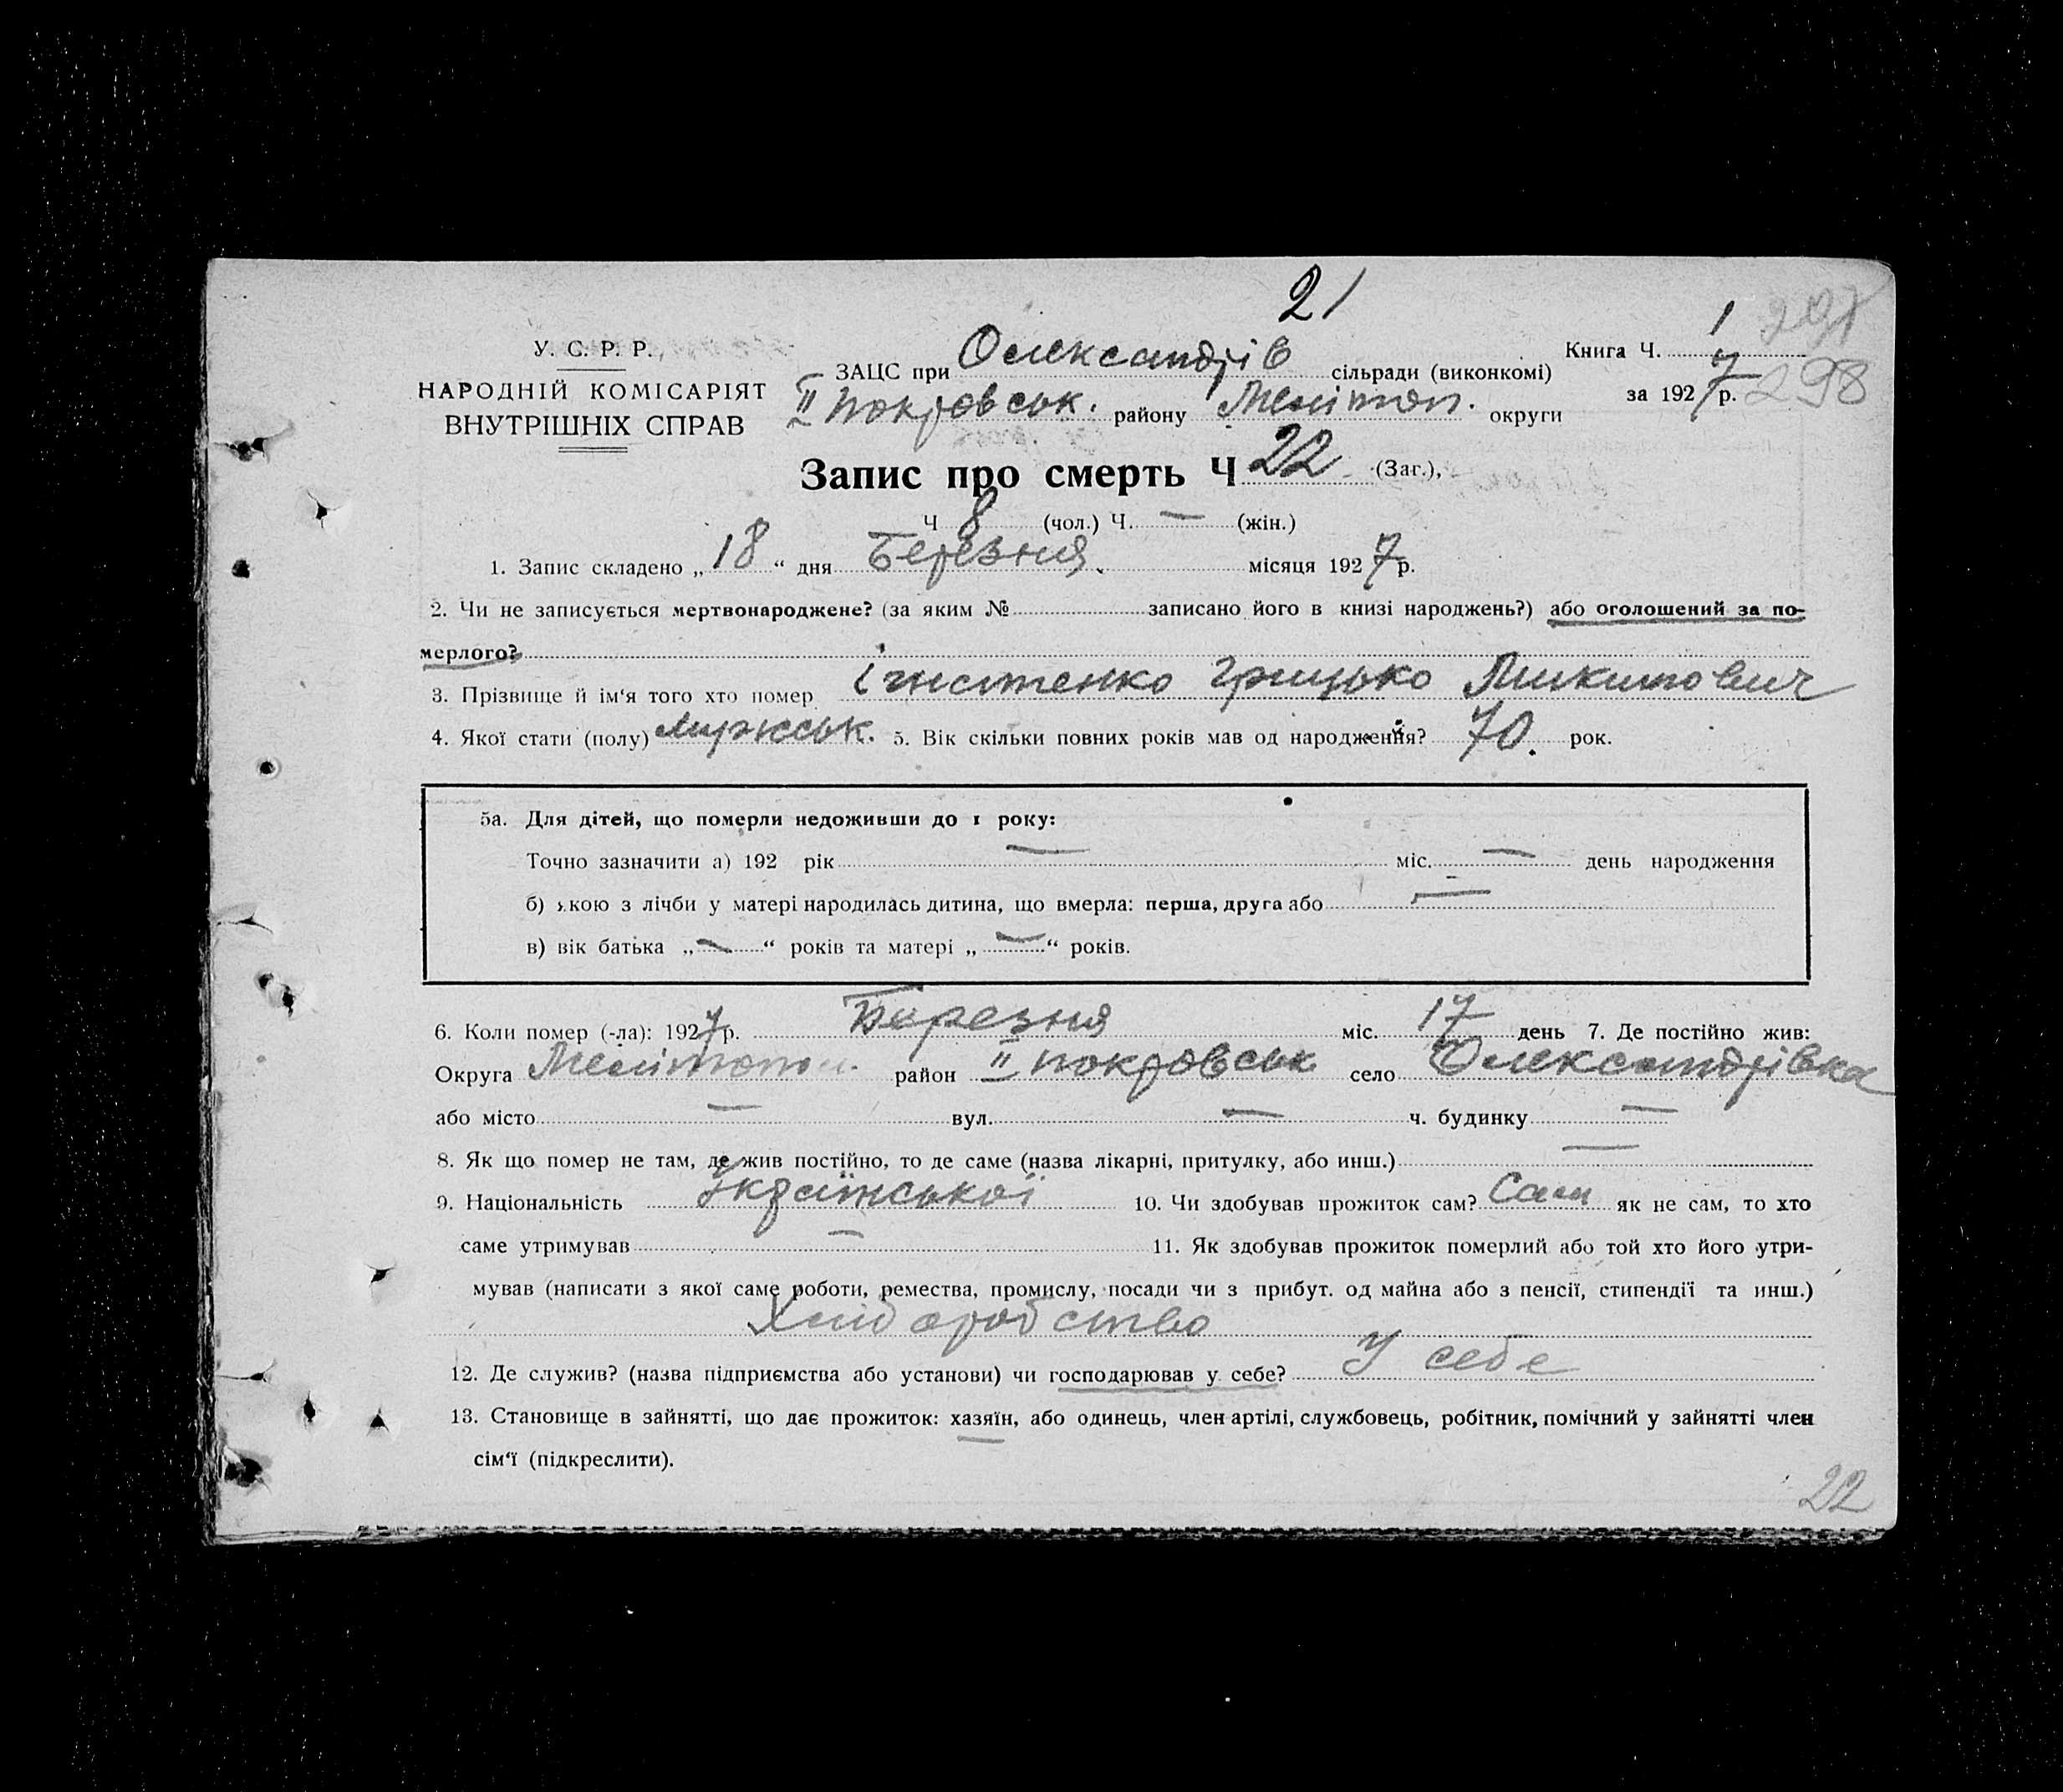 21
У. С. Р. Р.
НАРОДНІЙ КОМІСАРІЯТ
ВНУТРІШНІХ СПРАВ
ЗАЦС при Олександрів сільради (виконкомі)
II Покровськ. району Мелітоп. округи
Книга Ч. 1
за 1927 р. 298
Запис про смерть Ч 22 (Заг.),
Ч 8 (чол.) Ч. — (жін.)
1. Запис складено „ 18 “ дня Березня місяця 1927 р.
2. Чи не записується мертвонароджене? (за яким № записано його в книзі народжень?) або оголошений за по-
мерлого?
3. Прізвище й ім‘я того хто помер Грицько Микитович
4. Якої стати (полу) Мужськ. 5. Вік скільки повних років мав од народження? 70 рок.
5а. Для дітей, що померли недоживши до 1 року:
Точно зазначити а) 192 рік — міс. — день народження
б) якою з лічби у матері народилась дитина, що вмерла: перша, друга або —
в) вік батька „ — “ років та матері „ — “ років.
6. Коли помер (-ла): 1927 р. Березня міс. 17 день 7. Де постійно жив:
Округа Мелітопол. район II Покровськ село Олександрівка
або місто — вул. — ч. будинку —
8. Як що помер не там, де жив постійно, то де саме (назва лікарні, притулку, або инш.) —
9. Національність Української 10. Чи здобував прожиток сам? Сам як не сам, то хто
саме утримував — 11. Як здобував прожиток померлий або той хто його утри-
мував (написати з якої саме роботи, ремества, промислу, посади чи з прибут. од майна або з пенсії, стипендії та инш.)
Хліборобство
12. Де служив? (назва підприємства або установи) чи господарював у себе? У себе
13. Становище в зайнятті, що дає прожиток: хазяїн, або одинець, член артілі, службовець, робітник, помічний у зайнятті член
сім‘ї (підкреслити).
22